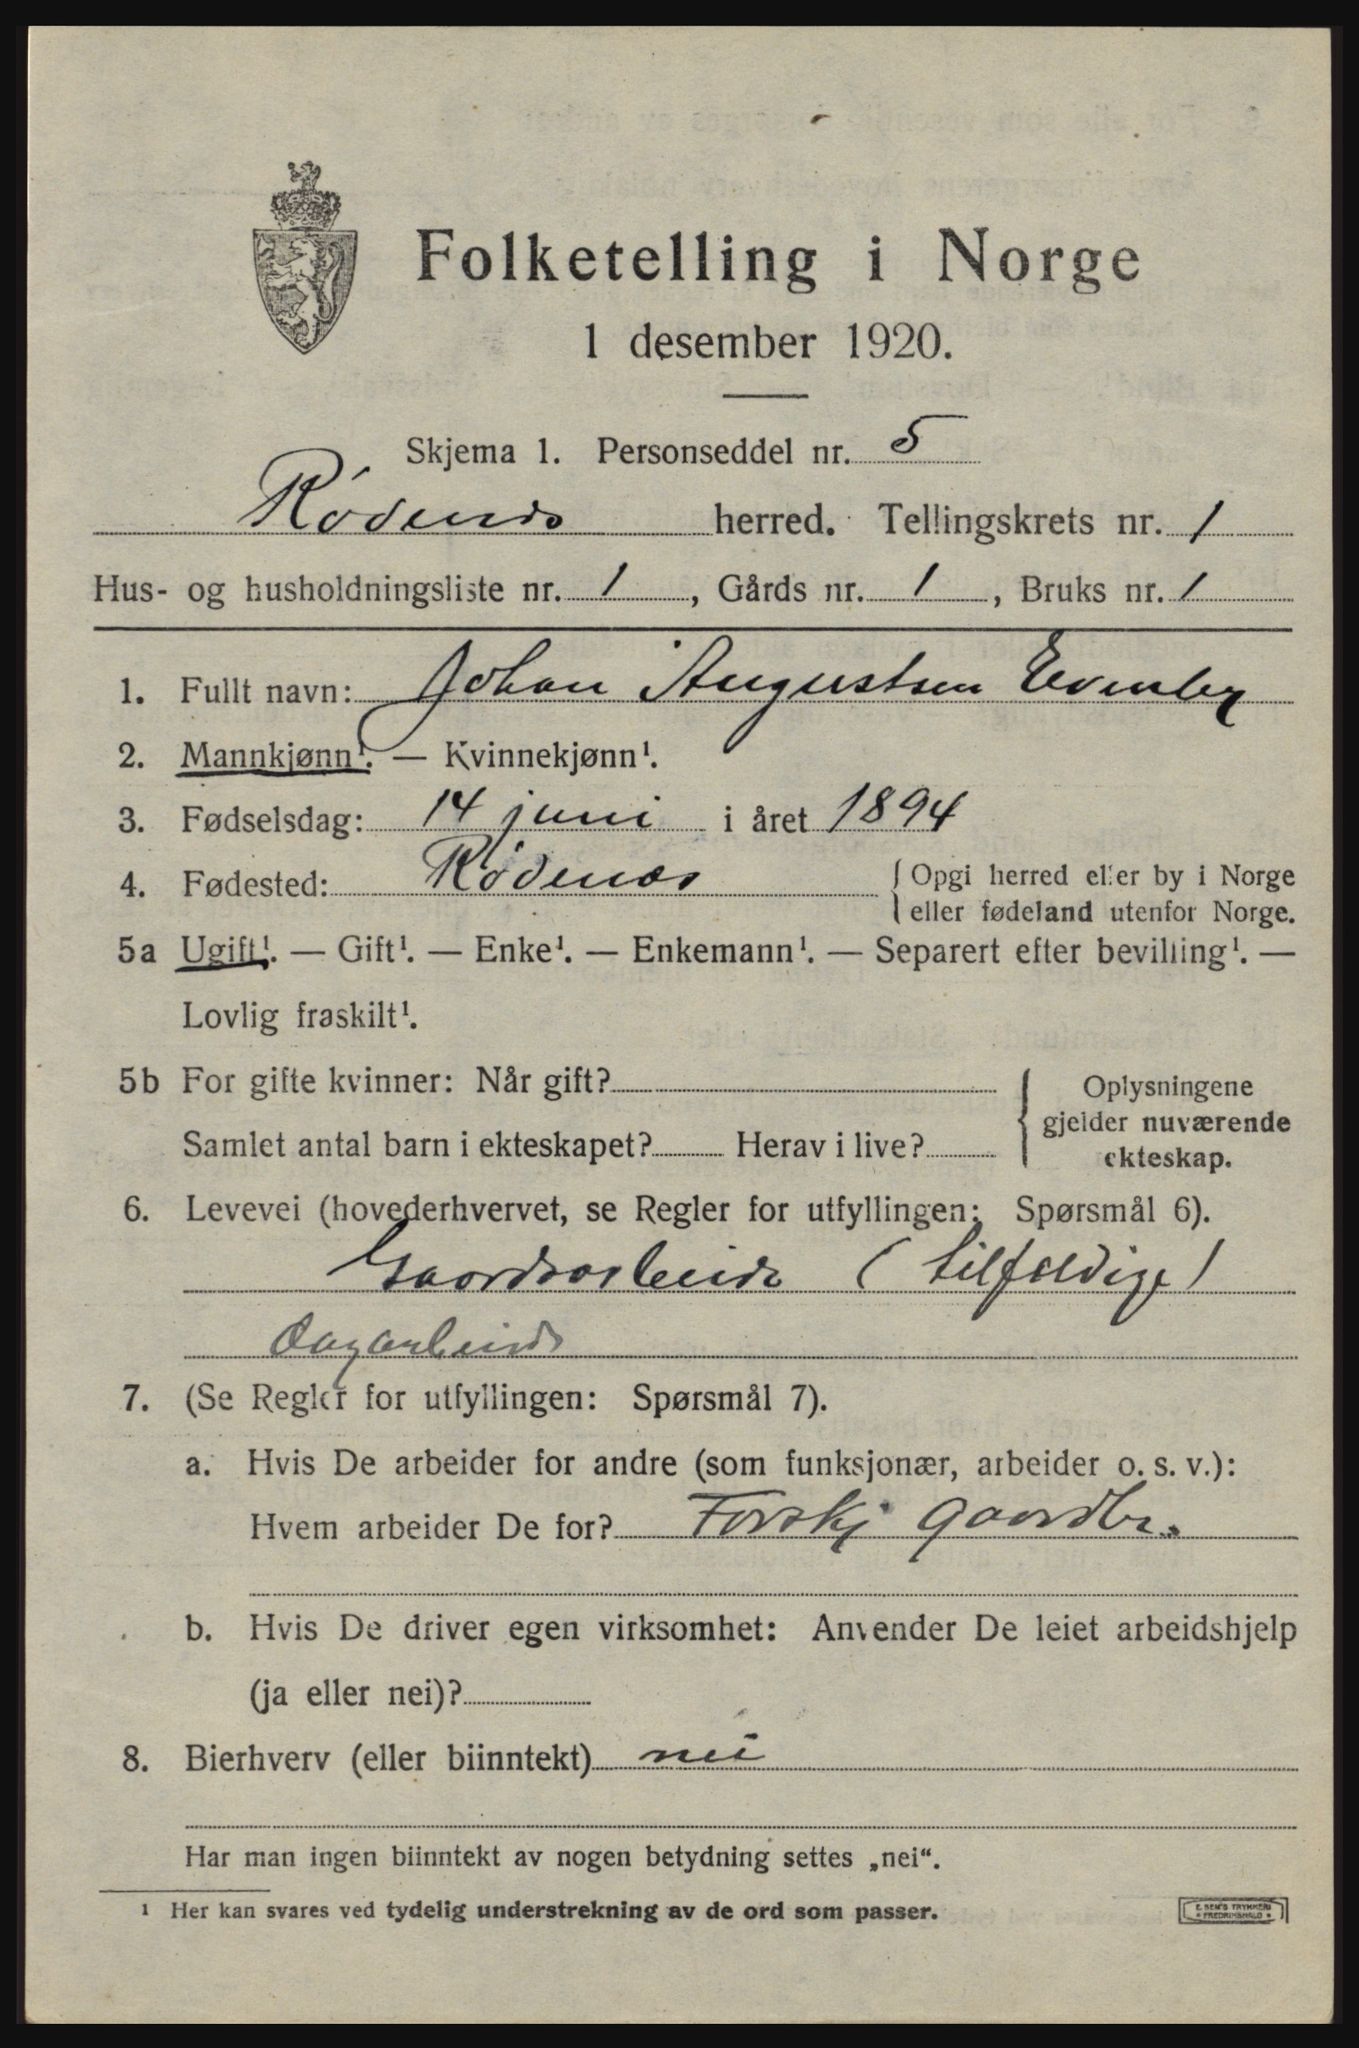 Folketelling i Norge
1 desember 1920.
Skjema 1. Personseddel nr. 5
Rødenes herred. Tellingskrets nr. 1
Hus- og husholdningsliste nr. 1, Gårds nr. 1, Bruks nr. 1
1. Fullt navn: Johan Augustsen Evenby
2. Mannkjønn¹. — Kvinnekjønn¹.
3. Fødselsdag: 14 juni i året 1894
4. Fødested: Rødenæs { Opgi herred eller by i Norge
eller fødeland utenfor Norge.
5a Ugift¹. — Gift¹. — Enke¹. — Enkemann¹. — Separert efter bevilling¹. —
Lovlig fraskilt¹.
5b For gifte kvinner: Når gift?
Samlet antal barn i ekteskapet? Herav i live?
{ Oplysningene
gjelder nuværende
ekteskap.
6. Levevei (hovederhvervet, se Regler for utfyllingen: Spørsmål 6).
Gaardsarbeide (tilfeldige)
dagarbeide
7. (Se Regler for utfyllingen: Spørsmål 7).
a. Hvis De arbeider for andre (som funksjonær, arbeider o. s. v.):
Hvem arbeider De for? Forskj gaardbr.
b. Hvis De driver egen virksomhet: Anvender De leiet arbeidshjelp
(ja eller nei)?
8. Bierhverv (eller biinntekt) nei
Har man ingen biinntekt av nogen betydning settes „nei“.
¹ Her kan svares ved tydelig understrekning av de ord som passer.
E. SEM'S TRYKKERI
• FREDRIKSHALD •